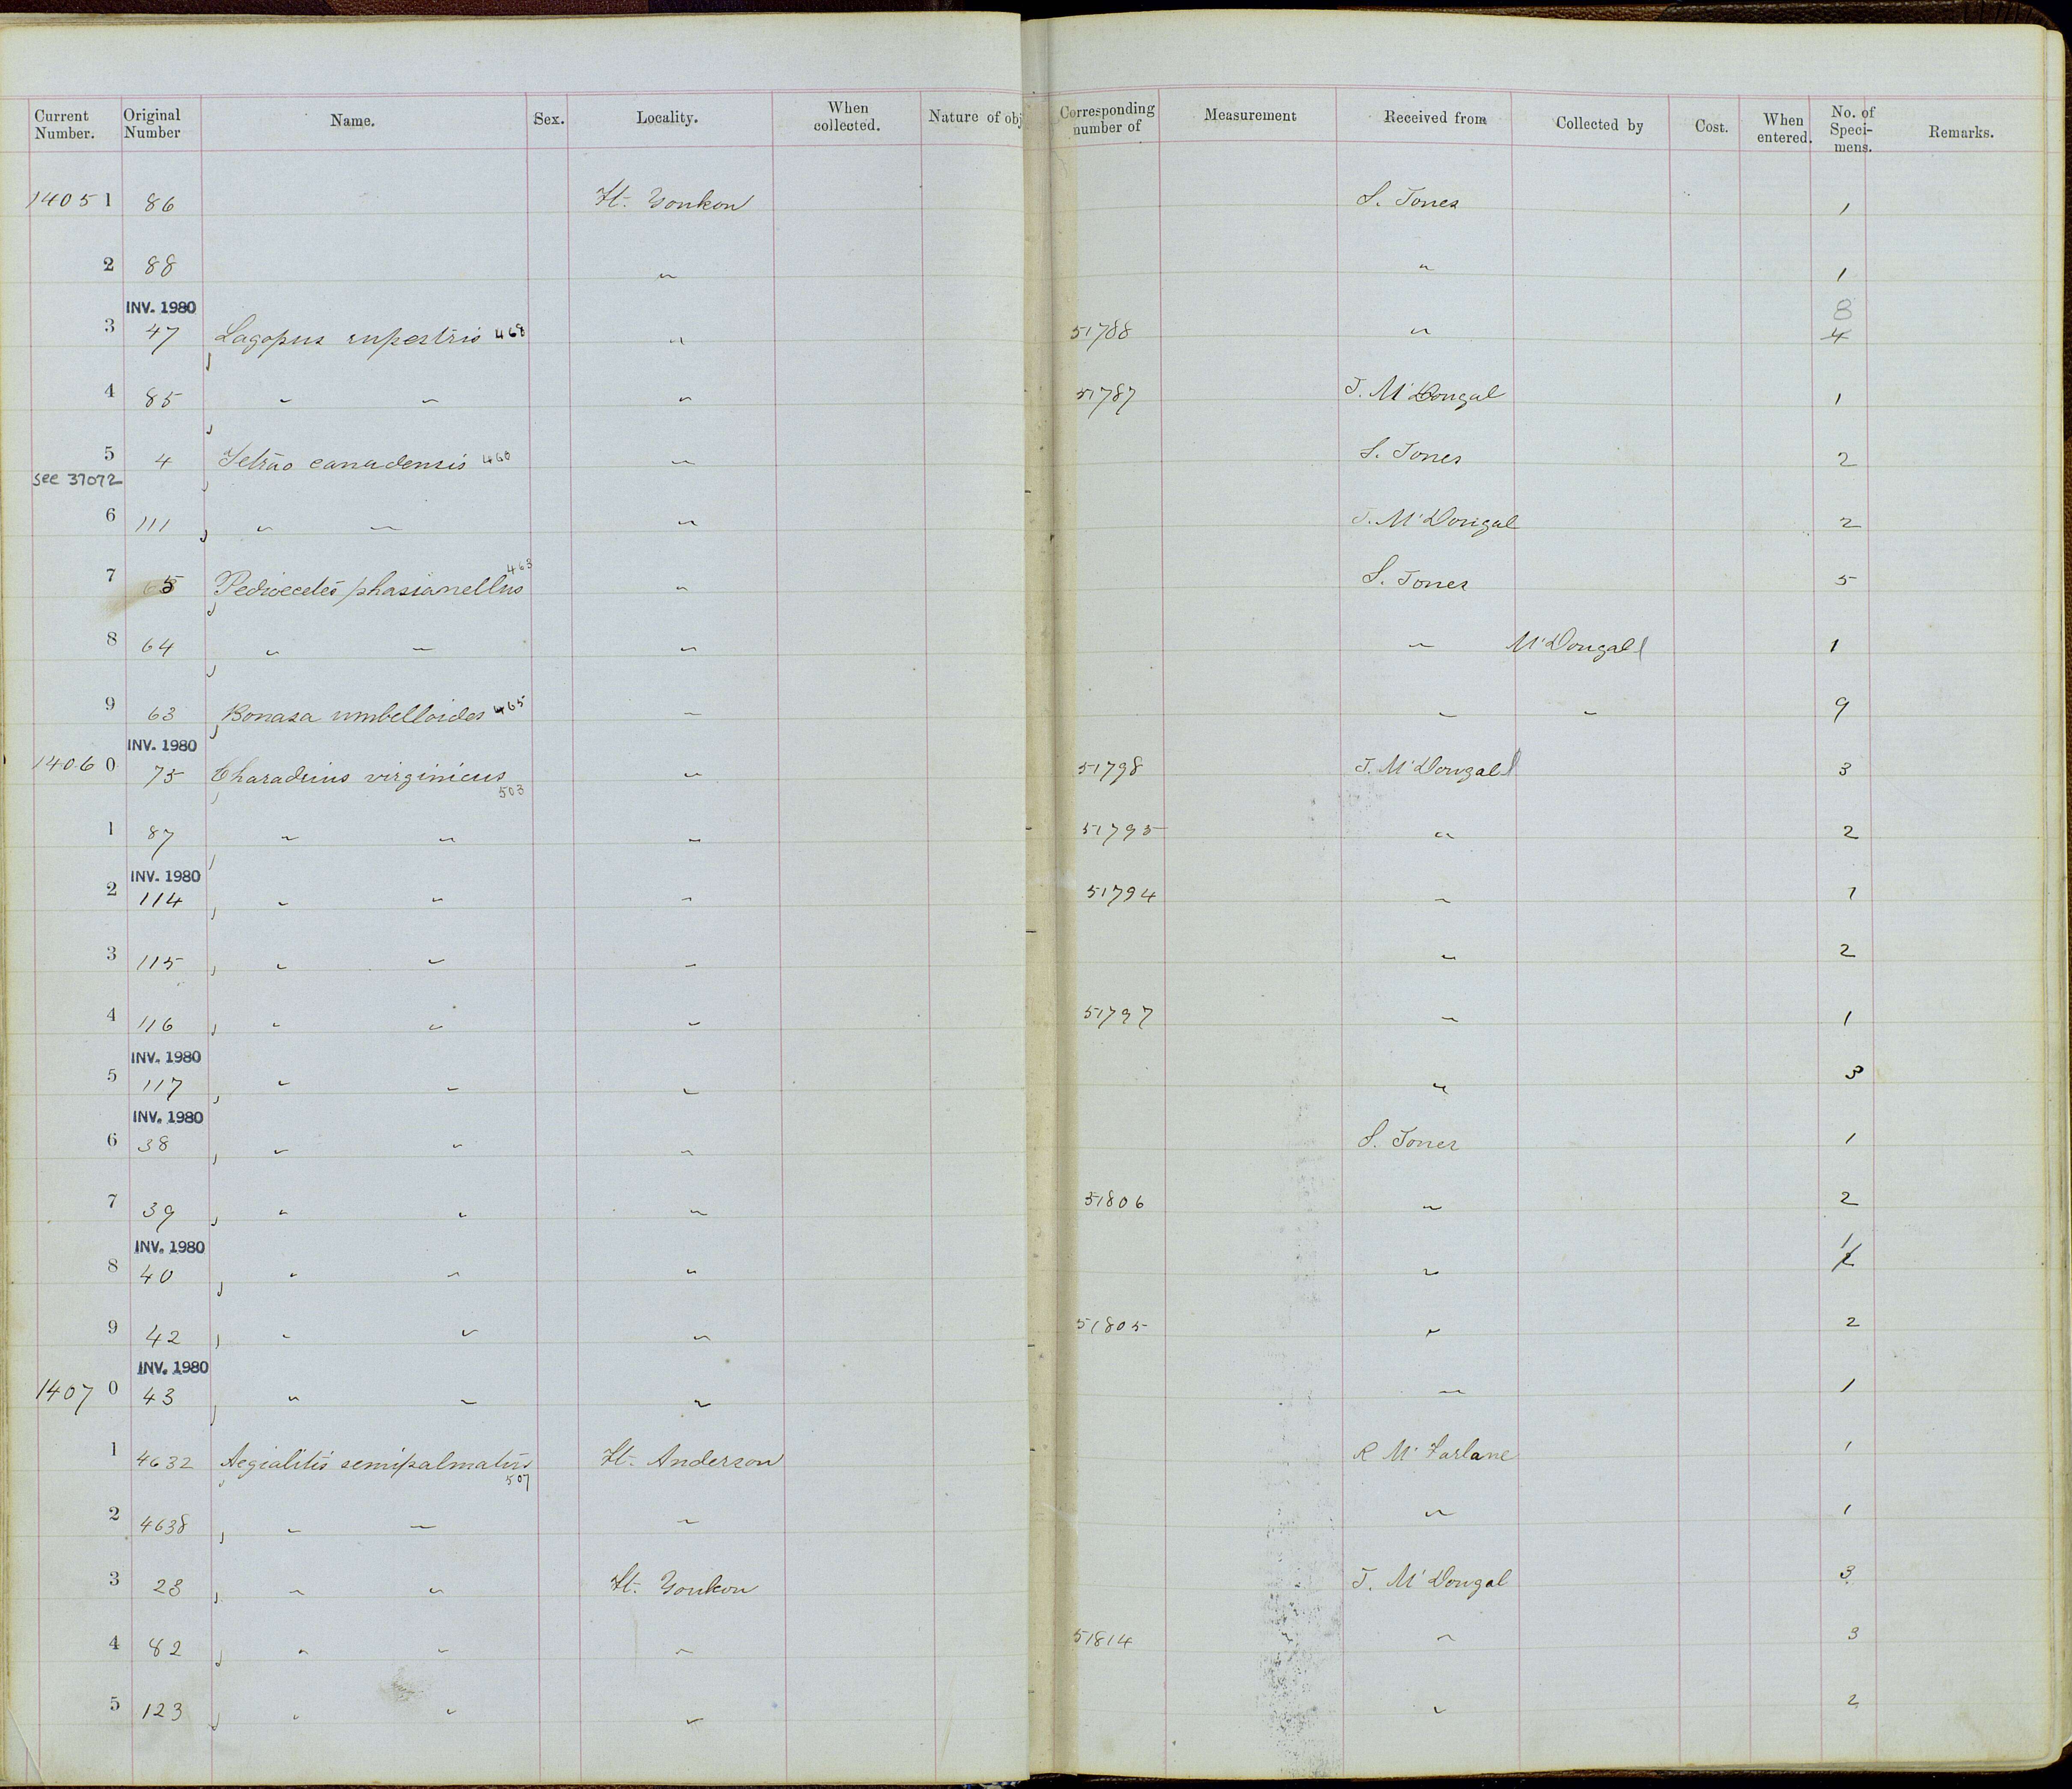 Current Number. Original Number Name. Sex. Locality. When collected. Nature of obj Corresponding number of Measurement Received from Collected by Cost. When entered. No. of Speci-mens. Remarks.
14051 86 Ft. Youkon S. Jones 1
2 88 " " 1
INV. 1980 8
3 47 Lagopus rupestris 468 " 51788 " 4
4 85 " " " 51787 J. McDougal 1
5 4 Tetrao canadensis 460 " S. Jones 2
see 37072
6 111 " " " J. McDougal 2
7 65 Pedioecetes phasianellus 463 " S. Jones 5
8 64 " " " " McDougall 1
9 63 Bonasa umbelloides 465 " " " 9
INV. 1980
14060 75 Charadrius virginicus 503 " 51798 J. McDougall 3
1 87 " " " 51795 " 2
INV. 1980
2 114 " " " 51794 " 1
3 115 " " " " 2
4 116 " " " 51797 " 1
INV. 1980
5 117 " " " " 3
INV. 1980
6 38 " " " S. Jones 1
7 39 " " " 51806 " 2
INV. 1980 1
8 40 " " " " 2
9 42 " " " 51805 " 2
INV. 1980
14070 43 " " " " 1
1 4632 Aegialitis semipalmatus 507 Ft. Anderson R McFarlane 1
2 4638 " " " " 1
3 28 " " Ft. Youkon J. McDougal 3
4 82 " " " 51814 " 3
5 123 " " " " 2